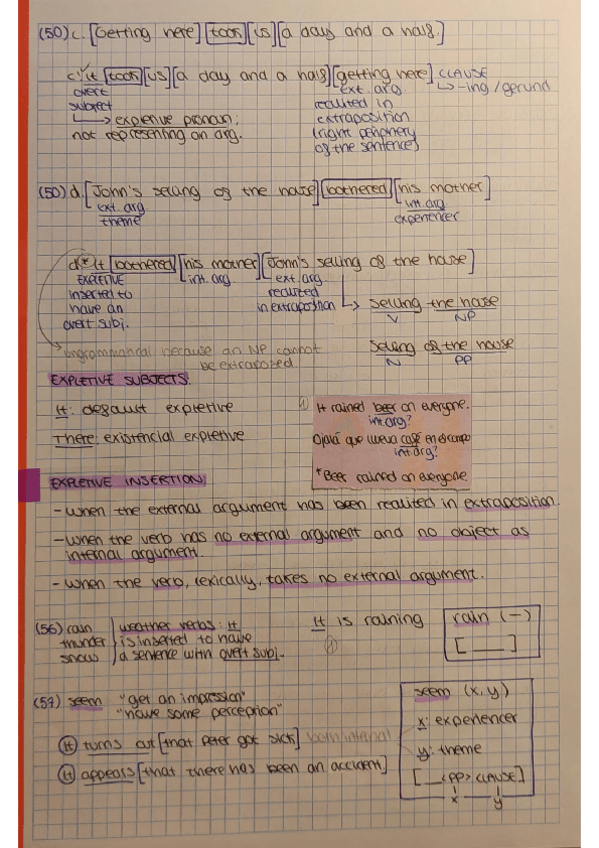 (50) c. [Getting here] [took] [us] [a day and a half.]
c'. it [took] [us] [a day and a half] [getting here] CLAUSE
overt ext. arg. ↳ -ing / gerund
subject realized in
↳ expletive pronoun; extraposition
not representing an arg. (right periphery
of the sentence)
(50) d. [John's selling of the house] [bothered] [his mother]
ext. arg. int. arg.
theme experiencer
d'.* it [bothered] [his mother] [John's selling of the house]
EXPLETIVE int. arg ext. arg.
inserted to realized
have an in extraposition ↳ selling the house
overt subj. V NP
ungrammatical because an NP cannot selling of the house
be extraposed N PP
EXPLETIVE SUBJECTS:
It: default expletive
There: existencial expletive
It rained beer on everyone.
int arg?
Ojalá que llueva café en el campo
int arg?
*Beer rained on everyone
EXPLETIVE INSERTION:
- when the external argument has been realized in extraposition.
- when the verb has no external argument and no object as
internal argument.
- when the verb, lexically, takes no external argument.
(56) rain weather verbs: It It is raining rain (-)
thunder is inserted to have [ ___ ]
snow a sentence with overt subj.
(57) seem "get an impression" seem (x, y)
"have some perception" x: experiencer
(It) turns out [that Peter got sick] both internal y: theme
(It) appears [that there has been an accident] [ __ <PP> CLAUSE]
x y